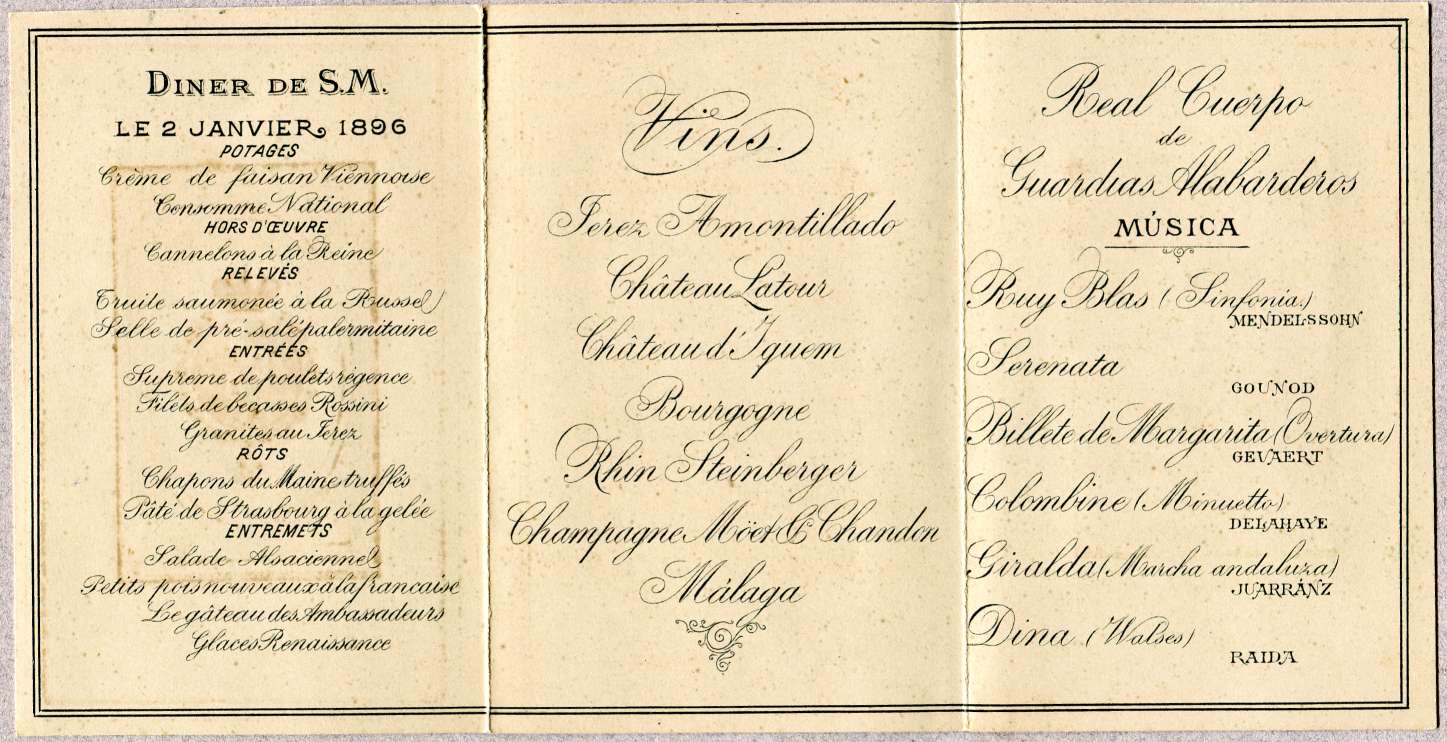 DINER DE S.M.
LE 2 JANVIER, 1896
POTAGES
Crème de faisan Viennoise
Consomme National
HORS D'ŒUVRE
Cannelons à la Reine
RELEVÉS
Truite saumonée à la Russe
Selle de pré-salé palermitaine
ENTRÉES
Supreme de poulets régence
Filets de becasses Rossini
Granites au Jerez
RÔTS
Chapons du Maine truffés
Pâté de Strasbourg à la gelée
ENTREMETS
Salade Alsacienne
Petits pois nouveaux à la francaise
Le gâteau des Ambassadeurs
Glaces Renaissance
Vins.
Jerez Amontillado
Château Latour
Château d'Iquem
Bourgogne
Rhin Steinberger
Champagne Möet & Chandon
Málaga
Real Cuerpo
de
Guardias Alabarderos
MÚSICA
Ruy Blas (Sinfonia)
MENDELSSOHN
Serenata
GOUNOD
Billete de Margarita (Overtura)
GEVAERT
Colombine (Minuetto)
DELAHAYE
Giralda (Marcha andaluza)
JUARRÁNZ
Dina (Walses)
RAIDA